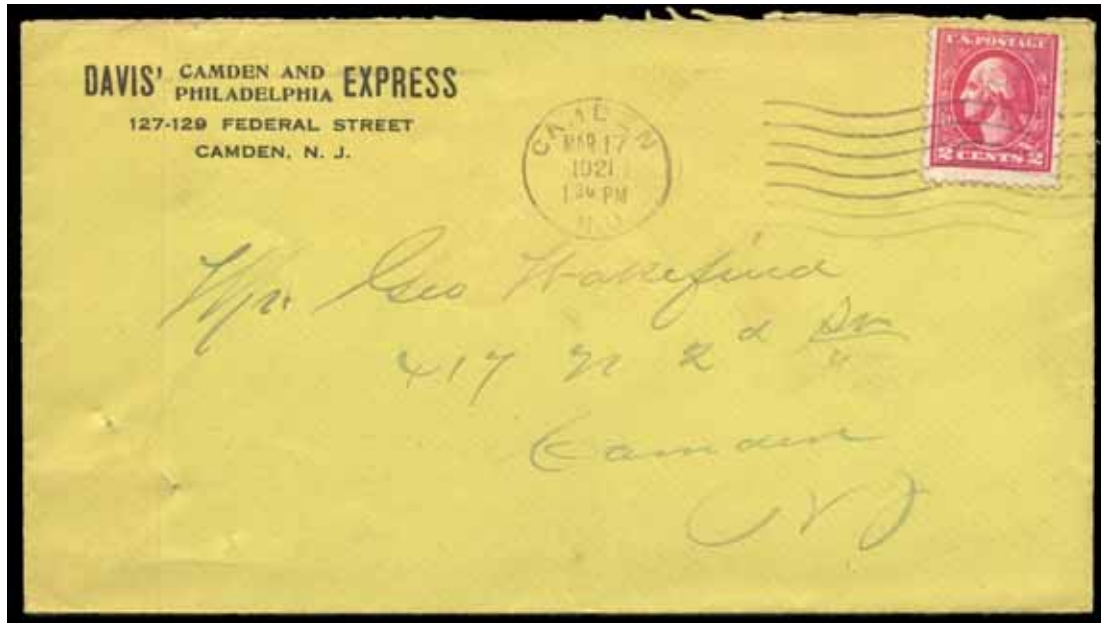 DAVIS' CAMDEN AND PHILADELPHIA EXPRESS
127-129 FEDERAL STREET
CAMDEN, N. J.
CAMDEN
MAR 17
1921
PM
N.J.
U.S. POSTAGE
2 CENTS 2
Mr. Geo
417 N 2d
Camden
NJ